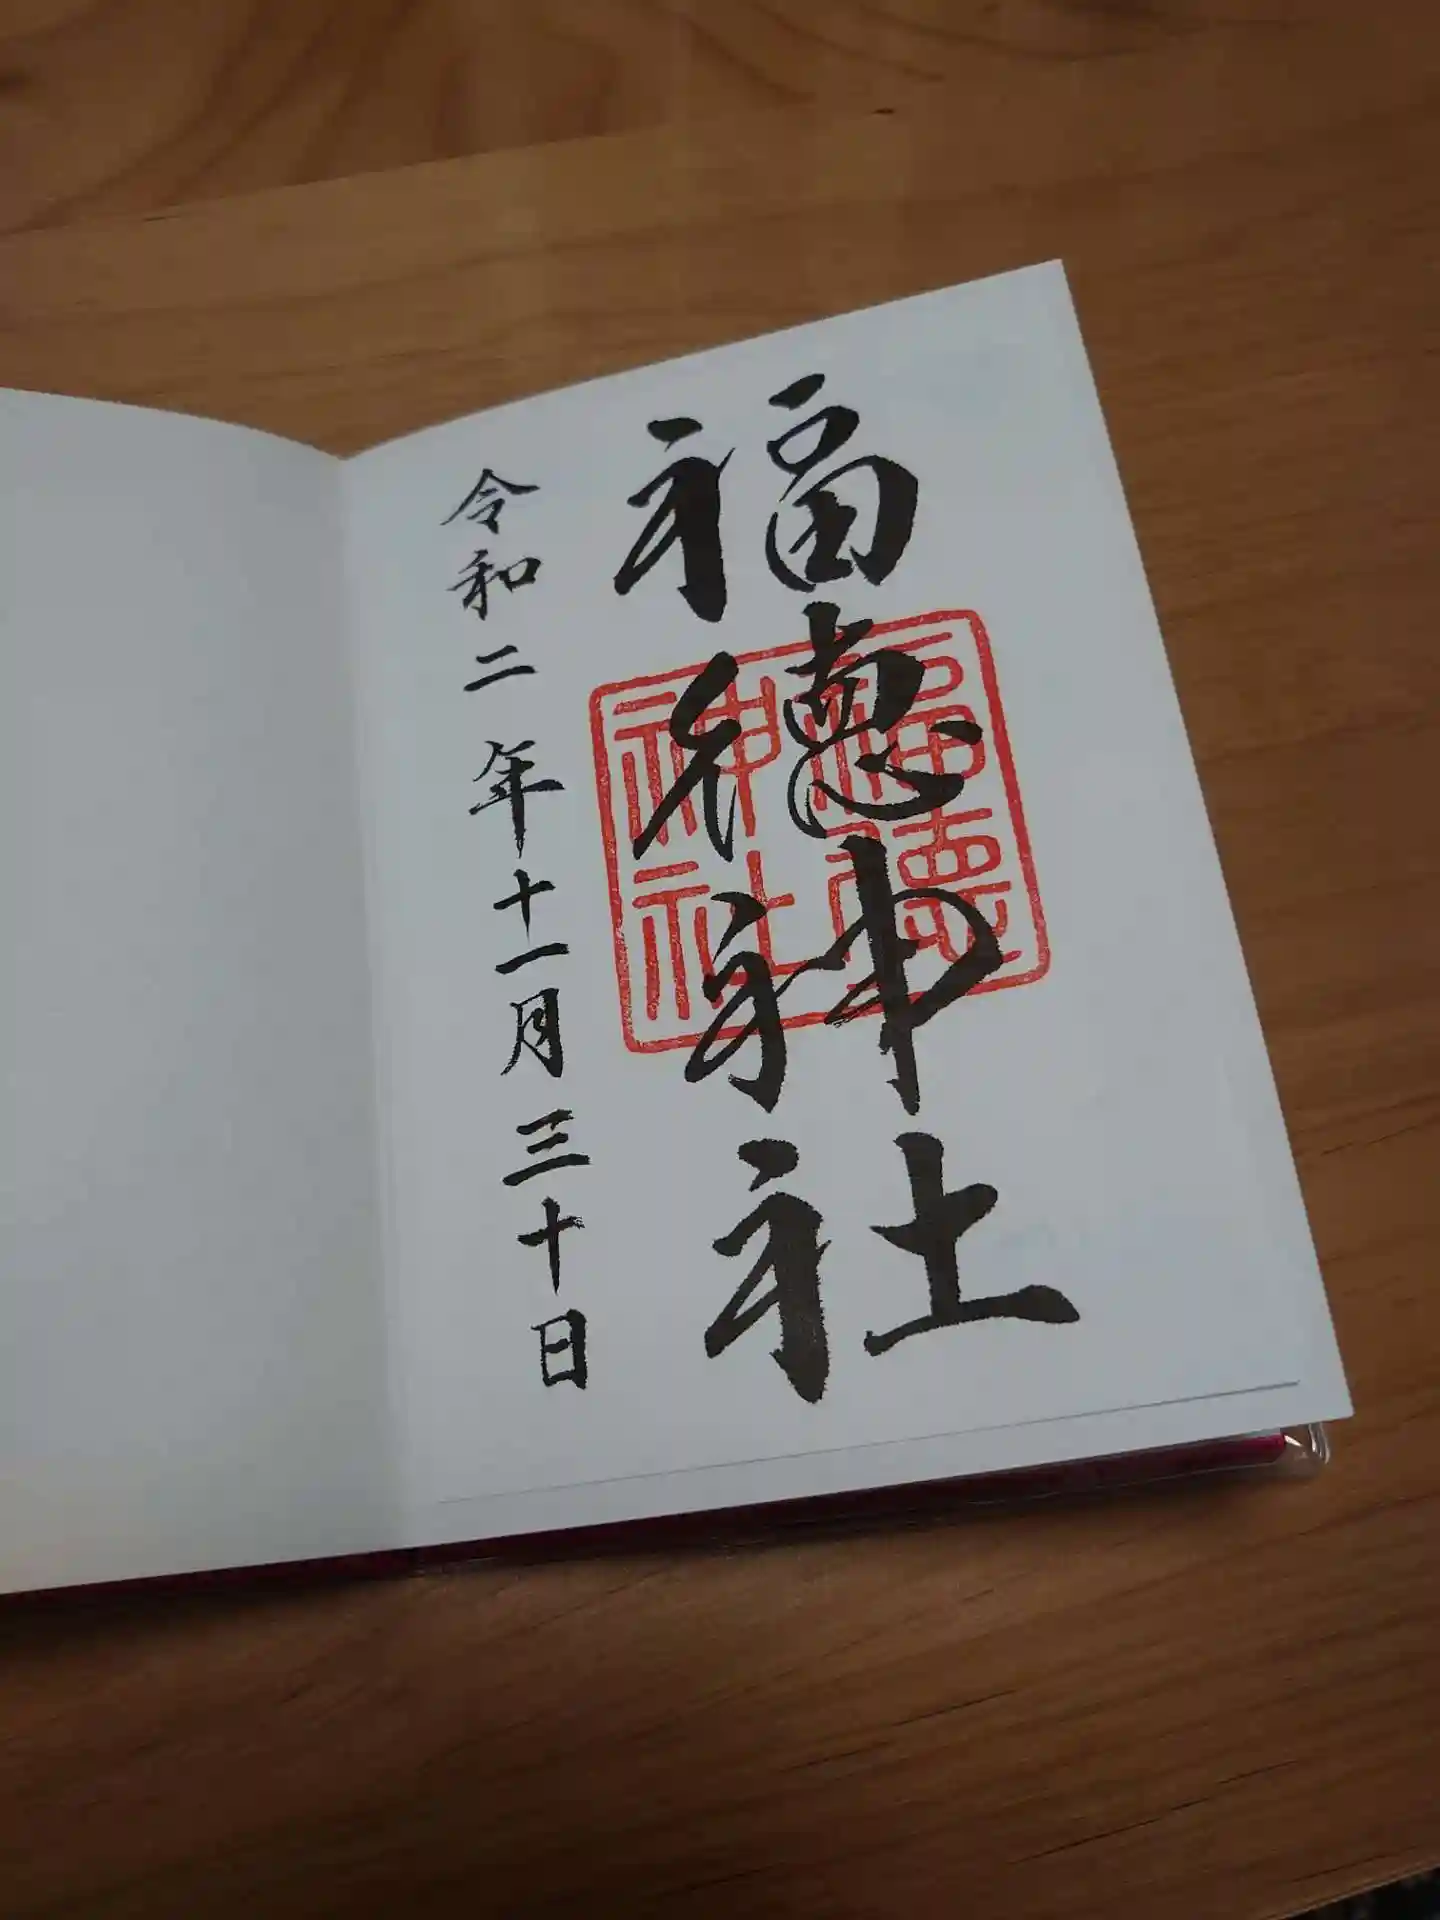 福徳神社
福徳
神社
令和二年十一月三十日